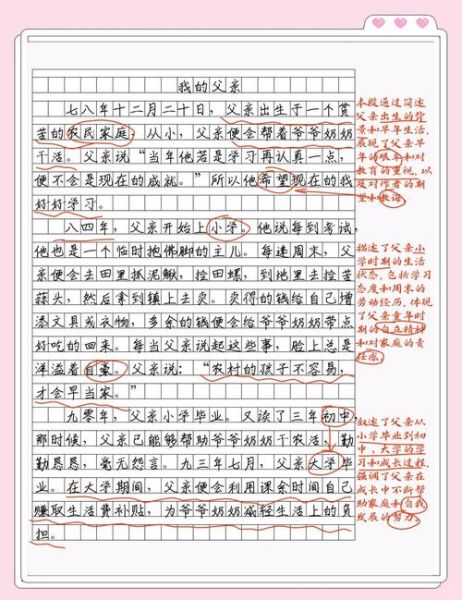 我的父亲
七八年十二月二十日，父亲出生于一个贫
苦的农民家庭，从小，父亲便会帮着爷爷奶奶
干活。父亲说“当年他若是学习再认真一点，
便不会是现在的成就。”所以他希望现在的我
好好学习。
八四年，父亲开始上小学。他说每到考试，
他也是一个临时抱佛脚的主儿。每逢周末，父
亲便会去田里抓泥鳅，捡田螺，到地里去捡苦
蒜头，然后拿到镇上去卖。卖得的钱给自己增
添文具或衣物，多余的钱便会给爷爷奶奶带点
好吃的回来。每当父亲说起这些事，脸上总是
洋溢着自豪。父亲说：“农村的孩子不容易，
才会早当家。”
九零年，父亲小学毕业。又读了三年初中，
那时候，父亲已能够帮助爷爷奶奶干农活，勤
勤恳恳，毫无怨言。九三年七月，父亲大学毕
业。在大学期间，父亲便会利用课余时间自己
赚取生活费补贴，为爷爷奶奶减轻生活上的负
担。
本段通过简述
父亲出生的背
景和早年生活，
展现了父亲早
年的艰辛和对
教育的重视，以
及对作者的期
望和教诲。
描述了父亲小
学时期的生活
状态，包括学习
态度和周末的
劳动经历，体现
了父亲童年时
期的自立精神
和对家庭的责
任感。
叙述了父亲从
小学毕业到初
中、大学的学
习和成长过程，
强调了父亲在
成长中不断帮
助家庭和自我
发展的努力。